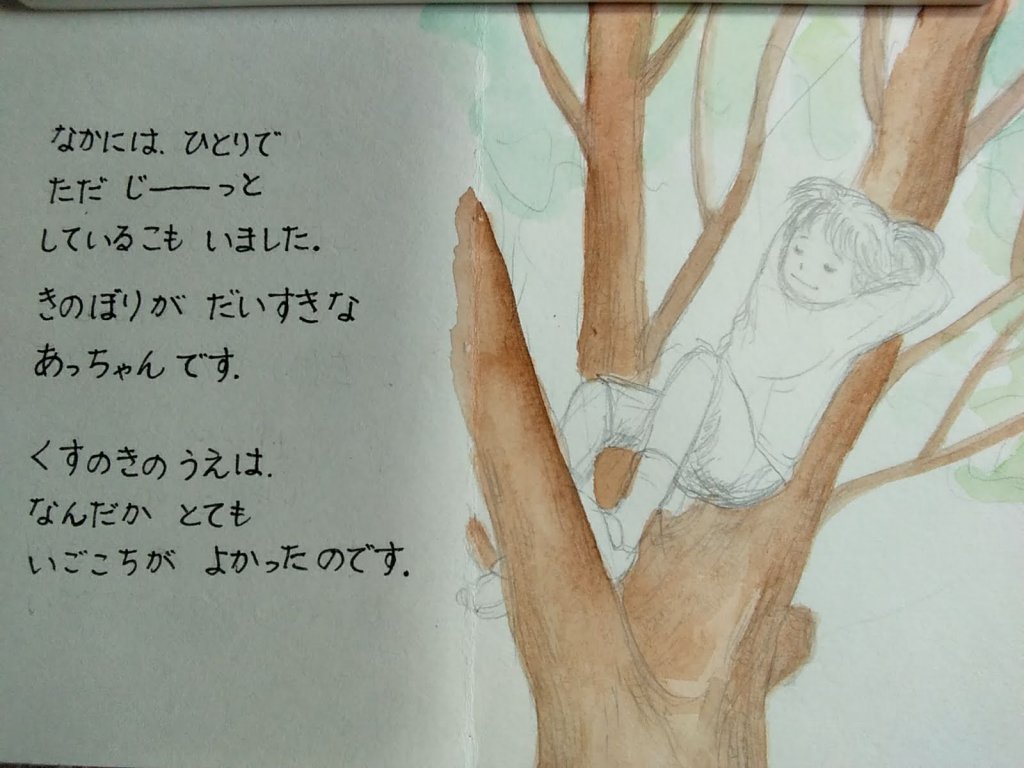 なかには、ひとりで
ただ じーーっと
しているこも いました。
きのぼりが だいすきな
あっちゃん です。
くすのきの うえは、
なんだか とても
いごこちが よかったのです。